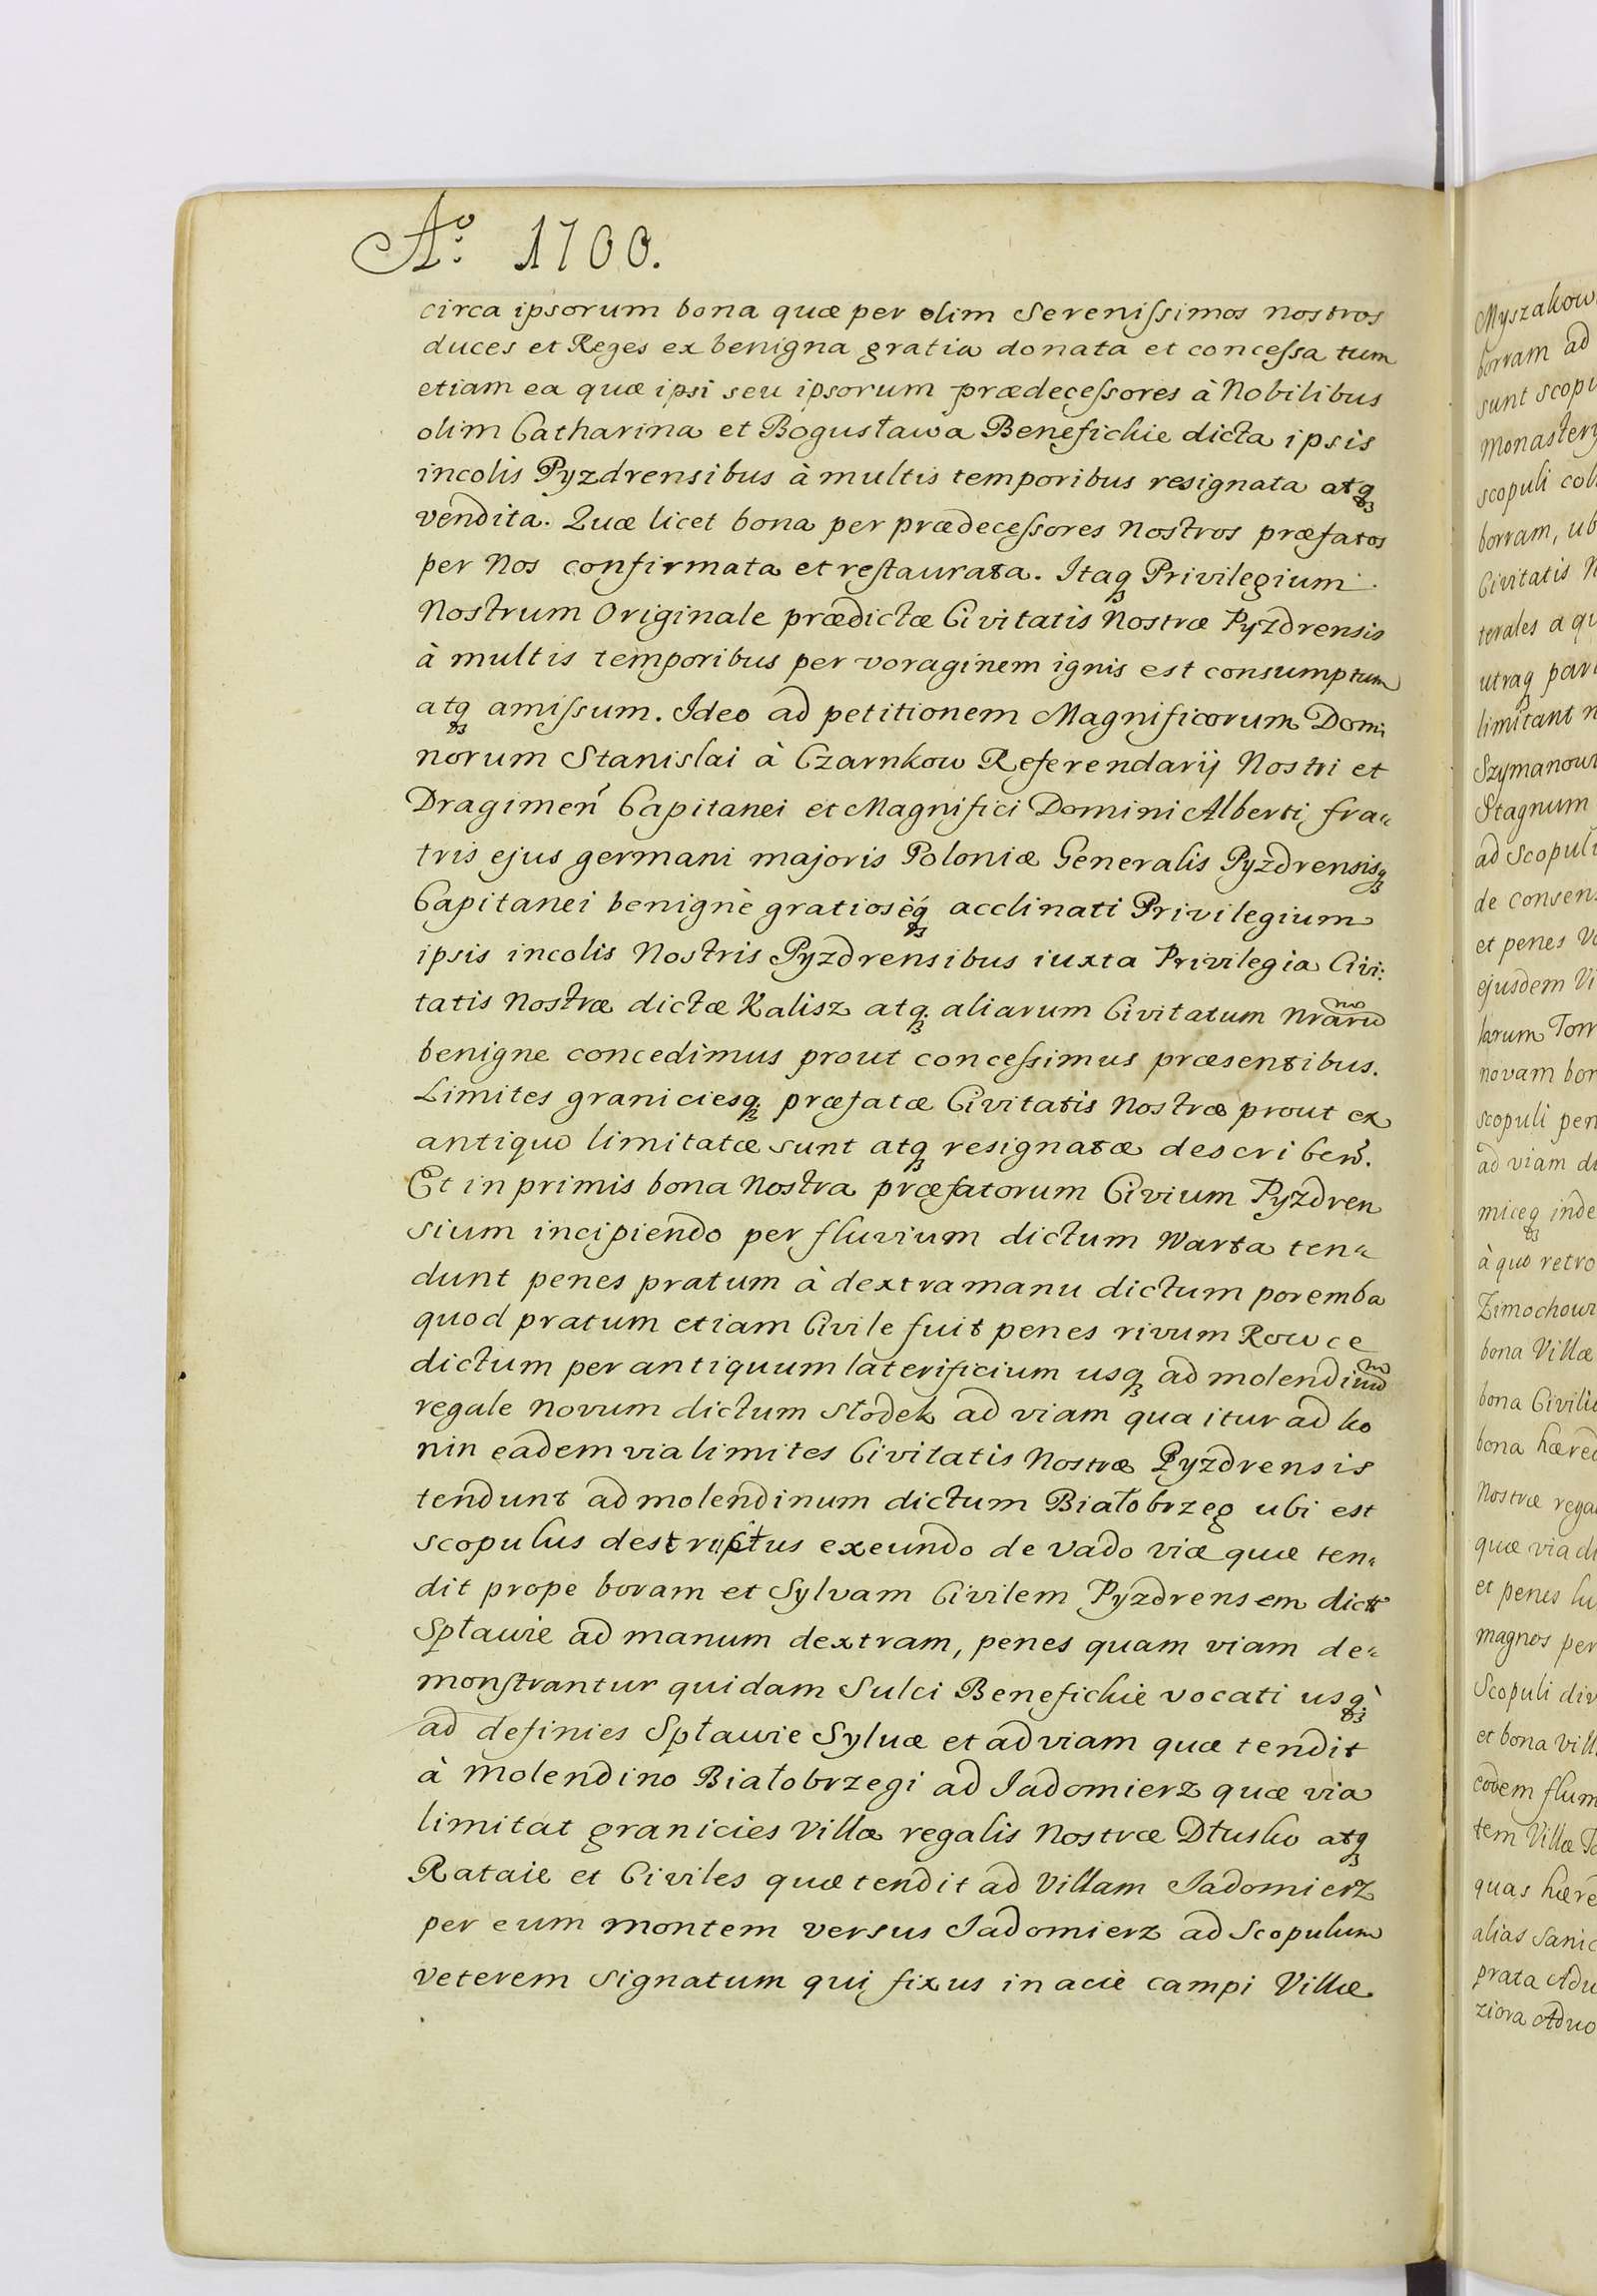 Aº 1700.
circa ipsorum bona quæ per olim Serenißimos nostros
duces et Reges ex benigna gratia donata et conceßa tum
etiam ea quæ ipsi seu ipsorum prædeceßores à Nobilibus
olim Catharina et Bogusława Benefickie dicta ipsis
incolis Pyzdrensibus à multis temporibus resignata atqꝫ
vendita. Quæ licet bona per prædeceßores Nostros præfatos
per Nos confirmata et restaurata. Itaqꝫ Privilegium
Nostrum Originale prædictæ Civitatis Nostræ Pyzdrensis
à multis temporibus per voraginem ignis est consumptum
atqꝫ amißum. Ideo ad petitionem Magnificorum Domi
norum Stanislai à Czarnkow Referendarij Nostri et
Dragimeñ Capitanei et Magnifici Domini Alberti fra„
tris ejus germani majoris Poloniæ Generalis Pyzdrensisqꝫ
Capitanei benignè gratiosèqꝫ acclinati Privilegium
ipsis incolis Nostris Pyzdrensibus iuxta Privilegia Civi:
tatis Nostræ dictæ Kalisz atqꝫ aliarum Civitatum Nrarũ
benigne concedimus prout conceßimus præsentibus.
Limites graniciesqꝫ præfatæ Civitatis Nostræ prout ex
antiquo limitatæ sunt atqꝫ resignatæ describeñ.
Et in primis bona Nostra præfatorum Civium Pyzdren
sium incipiendo per fluvium dictum Warta ten„
dunt penes pratum à dextra manu dictum poremba
quod pratum etiam Civile fuit penes rivum Rowce
dictum per antiquum laterificium usqꝫ ad molendinũ
regale novum dictum Słodek ad viam qua itur ad ko
nin eadem via limites Civitatis Nostræ Pyzdrensis
tendunt ad molendinum dictum Białobrzeg ubi est
scopulus destructus exeundo de vado viæ quæ ten„
dit prope boram et Sylvam Civilem Pyzdrensem dict
Spławie ad manum dextram, penes quam viam de„
monstrantur quidam Sulci Benefickie vocati usqꝫ
ad definies Spławie Sylvæ et ad viam quæ tendit
à molendino Białobrzegi ad Jadomierz quæ via
limitat granicies Villæ regalis Nostræ Dłusko atqꝫ
Rataie et Civiles quæ tendit ad Villam Jadomierz
per eum montem versus Jadomierz ad Scopulum
veterem signatum qui fixus in acie campi Villæ